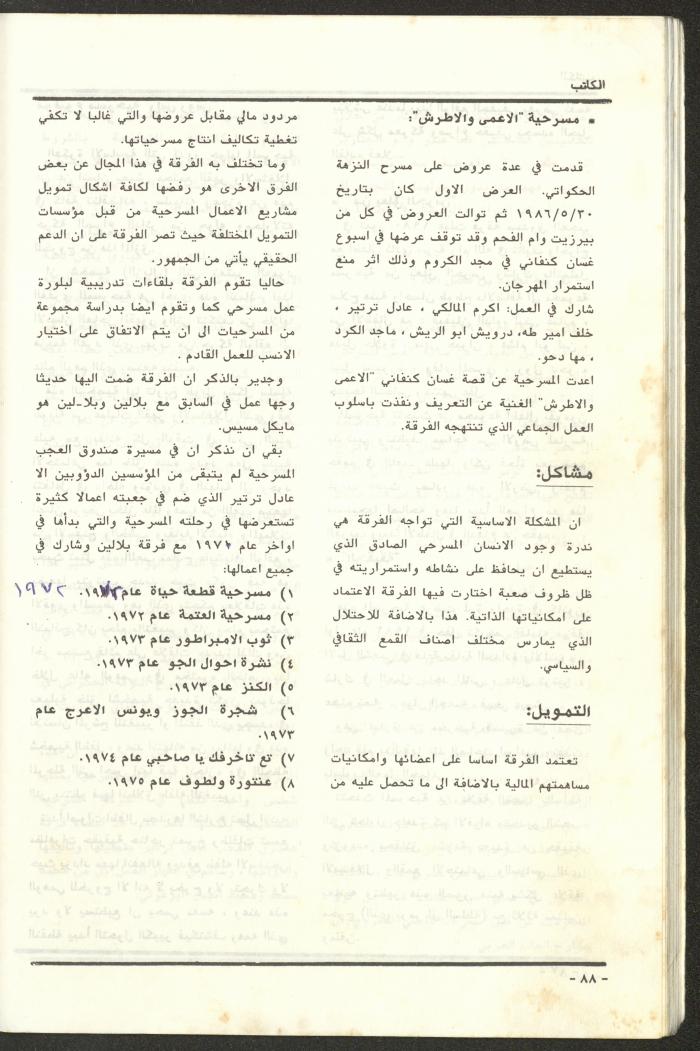 الكاتب
▪ مسرحية "الاعمى والاطرش":
قدمت في عدة عروض على مسرح النزهة
الحكواتي. العرض الاول كان بتاريخ
١٩٨٦/٥/٣٠ ثم توالت العروض في كل من
بيرزيت وام الفحم وقد توقف عرضها في اسبوع
غسان كنفاني في مجد الكروم وذلك اثر منع
استمرار المهرجان.
شارك في العمل: اكرم المالكي ، عادل ترتير ،
خلف امير طه، درويش ابو الريش ، ماجد الكرد
، مها دحو.
اعدت المسرحية عن قصة غسان كنفاني "الاعمى
والاطرش" الغنية عن التعريف ونفذت باسلوب
العمل الجماعي الذي تنتهجه الفرقة.
مشاكل:
ان المشكلة الاساسية التي تواجه الفرقة هي
ندرة وجود الانسان المسرحي الصادق الذي
يستطيع ان يحافظ على نشاطه واستمراريته في
ظل ظروف صعبة اختارت فيها الفرقة الاعتماد
على امكانياتها الذاتية. هذا بالاضافة للاحتلال
الذي يمارس مختلف اصناف القمع الثقافي
والسياسي.
التمويل:
تعتمد الفرقة اساسا على اعضائها وامكانيات
مساهمتهم المالية بالاضافة الى ما تحصل عليه من
مردود مالي مقابل عروضها والتي غالبا لا تكفي
تغطية تكاليف انتاج مسرحياتها.
وما تختلف به الفرقة في هذا المجال عن بعض
الفرق الاخرى هو رفضها لكافة اشكال تمويل
مشاريع الاعمال المسرحية من قبل مؤسسات
التمويل المختلفة حيث تصر الفرقة على ان الدعم
الحقيقي يأتي من الجمهور.
حاليا تقوم الفرقة بلقاءات تدريبية لبلورة
عمل مسرحي كما وتقوم ايضا بدراسة مجموعة
من المسرحيات الى ان يتم الاتفاق على اختيار
الانسب للعمل القادم .
وجدير بالذكر ان الفرقة ضمت اليها حديثا
وجها عمل في السابق مع بلالين وبلا-لين هو
مايكل مسيس.
بقي ان نذكر ان في مسيرة صندوق العجب
المسرحية لم يتبقى من المؤسسين الدؤوبين الا
عادل ترتير الذي ضم في جعبته اعمالا كثيرة
تستعرضها في رحلته المسرحية والتي بدأها في
اواخر عام ١٩٧١ مع فرقة بلالين وشارك في
جميع اعمالها:
١) مسرحية قطعة حياة عام ١٩٧٢. ١٩٧٢
٢) مسرحية العتمة عام ١٩٧٢.
٣) ثوب الامبراطور عام ١٩٧٣.
٤) نشرة احوال الجو عام ١٩٧٣.
٥) الكنز عام ١٩٧٣.
٦) شجرة الجوز ويونس الاعرج عام
١٩٧٣.
٧) تع تاخرفك يا صاحبي عام ١٩٧٤.
٨) عنتورة ولطوف عام ١٩٧٥.
- ٨٨ -